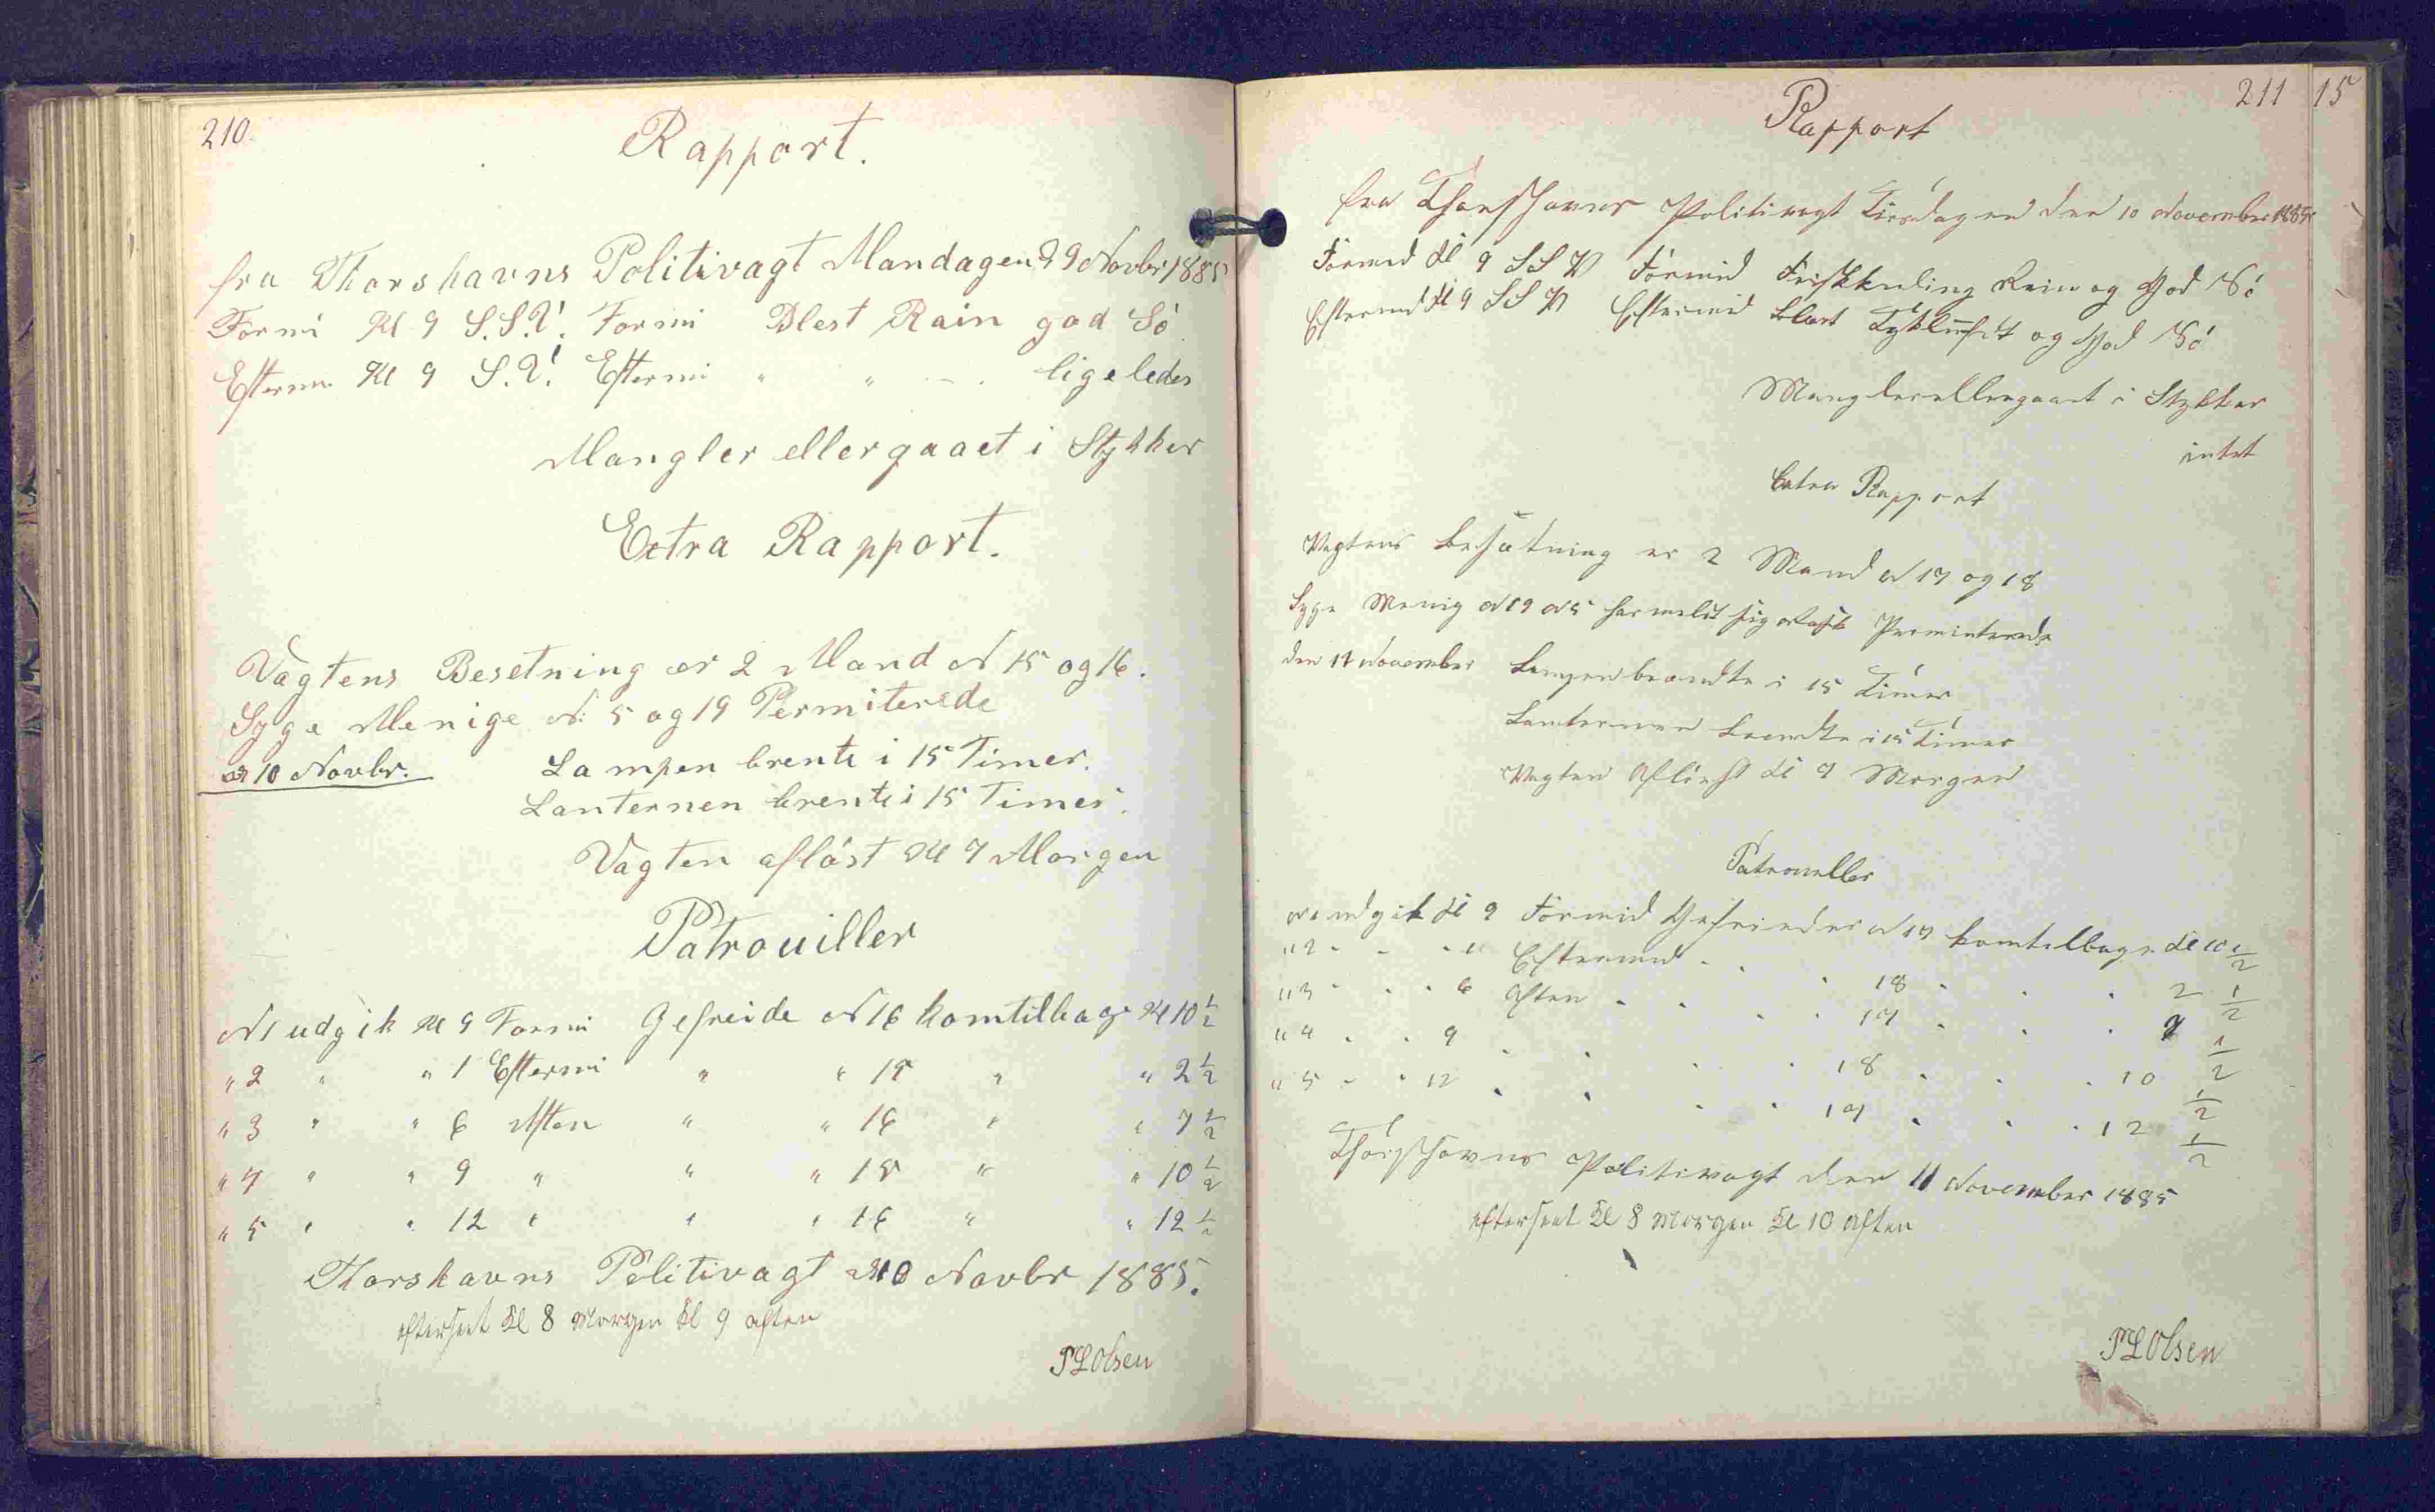 210.
Rapport.
fra Thorshavns Politivagt Mandagen d 9 Novbr 1885
Formi Kl 9 S.S.V. Formi Blest Rain god Sö
Efterm. Kl 9 S.V. Eftermi " " ligeledes
Mangler eller gaaet i Stykker
Extra Rapport.
Vagtens Besetning er 2 Mand N 15 og 16.
Syge Menige N: 5 og 19 Permiterede
10 Novbr. Lampen brente i 15 Timer.
Lanternen brente i 15 Timer.
Vagten aflöst Kl 9 Morgen
Patrouiller
N 1 udgik Kl 9 Formi Gefreide N 16 kom tilbage Kl 10 1/2
" 2 " " 1 Eftermi " " 15 " " 2 1/2
" 3 " " 6 Aften " " 16 " " 7 1/2
" 4 " " 9 " " " 15 " " 10 1/2
" 5 " " 12 " " " 16 " " 12 1/2
Thorshavns Politivagt d 10 Novbr 1885.
efterseet Kl 8 Morgen Kl 9 aften
PLOlsen
211 15
Rapport
fra Thorshavns Politivagt Tirsdagen den 10 November 1885
Formid Kl 9 SSV Formid Friskkuling Rein og God Sö
Eftermid Kl 9 SSV Eftermid Blæst Tykluft og God Sö
Mangler eller gaaet i Stykker
intet
Extra Rapport
Vagtens Besætning er 2 Mand N 17 og 18
Syge Menig N 19 N 5 har meldt sig Rask Permiterede
den 11 November Lampen brændte i 15 Timer
Lanternen brendte i 15 Timer
Vagten Aflöst Kl 9 Morgen
Patrouller
N 1 udgik Kl 9 Formid Gefreider N 17 kom tilbage Kl 10 1/2
" 2 " " " 1 Eftermid " " " 18 " " " 2 1/2
" 3 " " " 6 Aften " " " " 17 " " " 7 1/2
" 4 " " 9 " " " " 18 " " " 10 1/2
" 5 " " 12 " " " " 17 " " " 12 1/2
Thorshavns Politivagt den 11 November 1885
efterseet Kl 8 Morgen Kl 10 Aften
PLOlsen